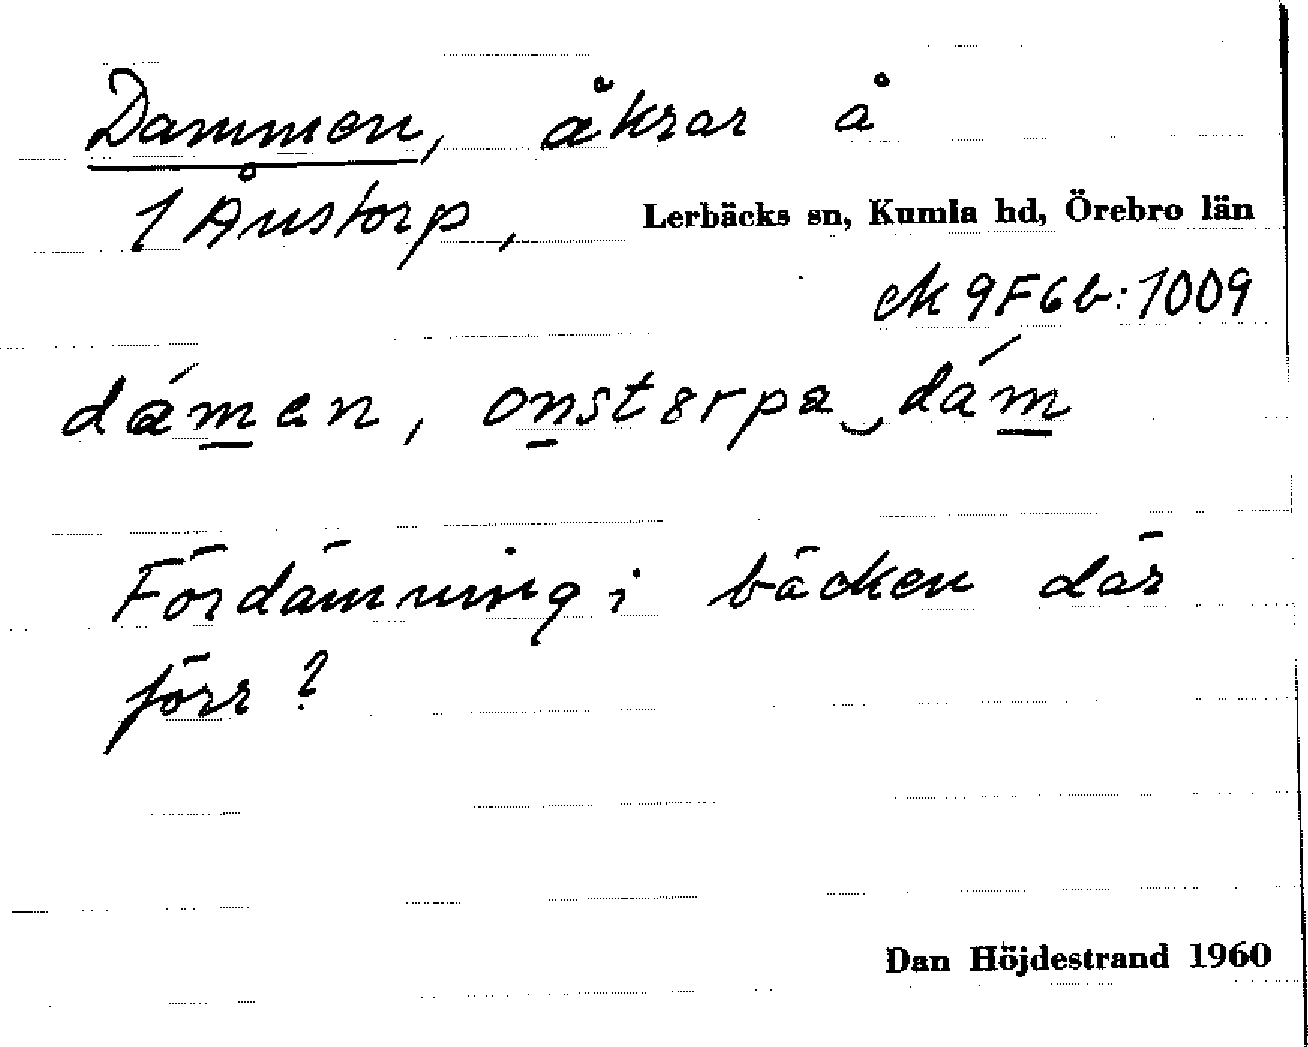 Dammen, åkrar å
1 Ånstorp, Lerbäcks sn, Kumla hd, Örebro län
ek 9F6b:1009
dámen, onstørpa dám
Fördämning i bäcken där
förr?
Dan Höjdestrand 1960